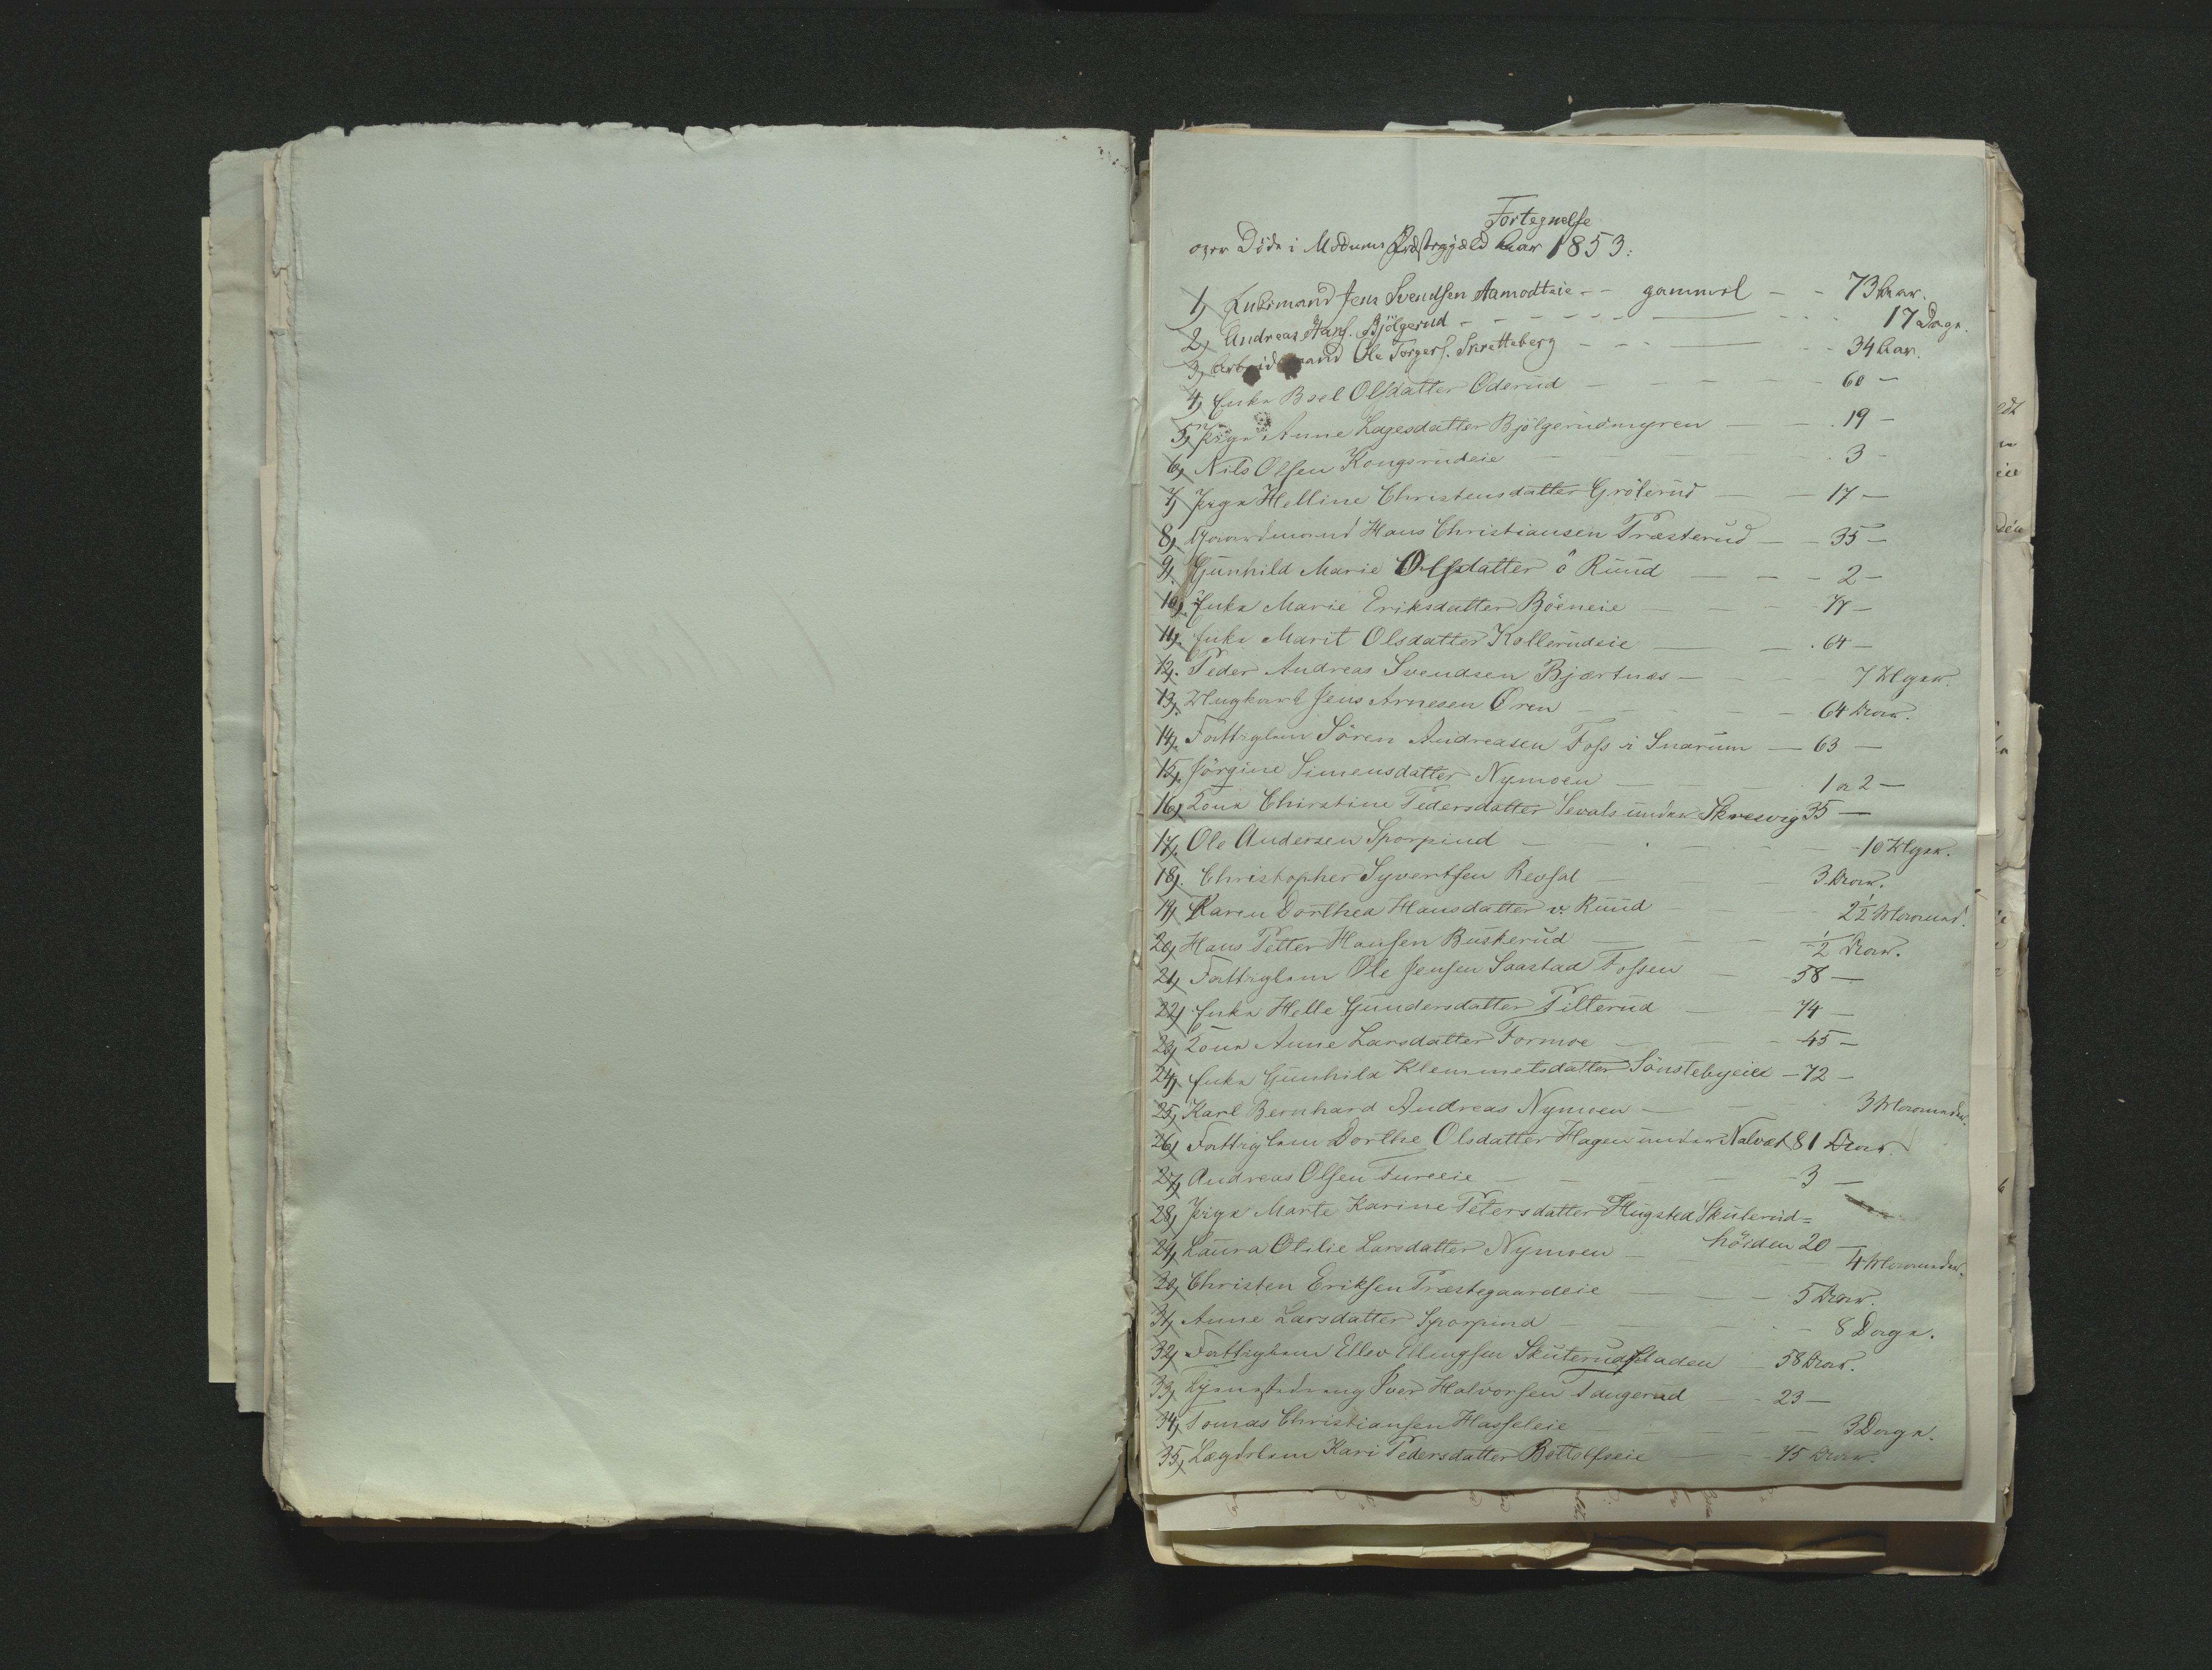 Fortegnelse
over Döde i Modums Præstegjæld Aar 1853:
1, Inderstmand Jens Svendsen Aamodteie - - gammel - - 73 Aar.
2, Andreas Hans. Bjölgerud - - - 17 Dage.
3, Arbeidsmand Ole Torgers. Skretteberg - - - 34 Aar.
4, Enke Boel Olsdatter Oderud - - - 60 -
5, Pige Anne Lagesdatter Bjölgerudmyren - - 19 -
6, Nils Olsen Kongsrudeie - 3 -
7, Pige Helline Christensdatter Grölerud - - 17 -
8, Gaardmand Hans Christiansen Præsterud - - 35 -
9, Gunhild Marie Olsdatter ö Ruud - - - 2 -
10, Enke Marie Eriksdatter Böeneie - - - 77 -
11, Enke Marit Olsdatter Kollerudeie - - 64 -
12, Peder Andreas Svendsen Bjærtnæs - - - 7 Uger.
13, Ungkarl Jens Arnesen Øren - - - 64 Aar.
14, Fattiglem Sören Andreasen Foss i Snarum - 63 -
15, Jörgine Simensdatter Nymoen - - - 1 a 2 -
16, Kone Christine Pedersdatter Sevals under Skresvig 35 -
17, Ole Andersen Sporpind - - - 10 Uger.
18, Christopher Syvertsen Revsal - - 3 Aar.
19, Karen Dorthea Hansdatter v. Ruud - - 2½ Maaned.
20, Hans Petter Hansen Buskerud - - - ½ Aar.
21, Fattiglem Ole Jensen Saastad Fossen - - 58 -
22, Enke Helle Gundersdatter Pitterud - - 74 -
23, Kone Anne Larsdatter Formoe - - 45 -
24, Enke Gunhild Klemmetsdatter Sönstebyeie - 72 -
25, Karl Bernhard Andreas Nymoen - - - 3 Maaneder.
26, Fattiglem Dorthe Olsdatter Hagen under Nalvæt 81 Aar.
27, Andreas Olsen Fureeie - - - 3 -
28, Pige Marte Karine Petersdatter Hugsted Skuterud=
höiden 20 -
29, Laura Otilie Larsdatter Nymoen - - - 4 Maaneder.
30, Christen Eriksen Præstegaardeie - - - 5 Aar.
31, Anne Larsdatter Sporpind - - - 8 Dage.
32, Fattiglem Ellev Ellingsen Skuterudfladen - 58 Aar.
33, Iver Halvorsen Taugerud - - 23 -
34, Tomas Christiansen Hasseleie - - - 3 Dage.
35, Lægdslem Kari Pedersdatter Bottolfseie - - 75 Aar.